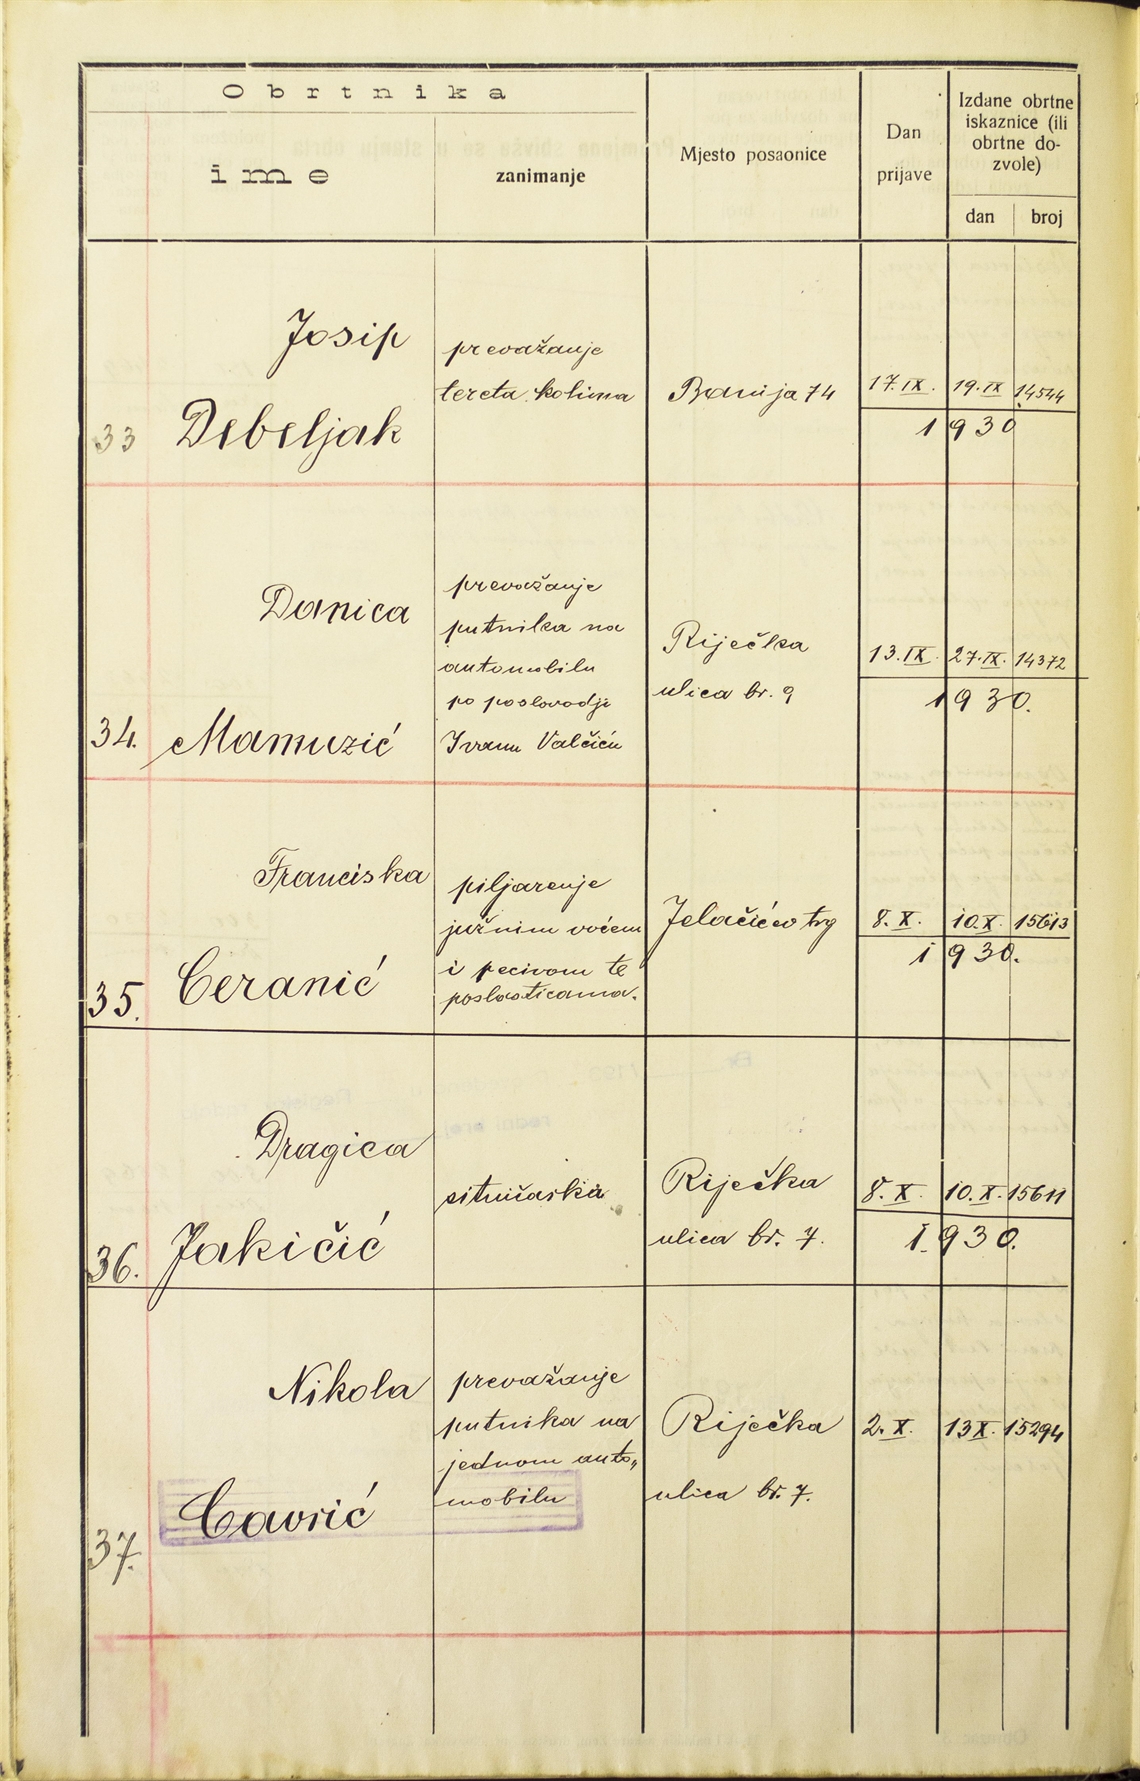 Obrtnika
ime
zanimanje
Mjesto posaonice
Dan
prijave
Izdane obrtne
iskaznice (ili
obrtne do-
zvole)
dan
broj
33
Josip
Debeljak
prevažanje
tereta kolima
Banija 74
17. IX. 19. IX 14544
1930
34.
Danica
Mamuzić
prevažanje
putnika na
automobilu
po poslovodji
Ivanu Valčiću
Riječka
ulica br. 9
13. IX. 27. IX. 14372
1930.
35.
Franciska
Ceranić
piljarenje
južnim voćem
i pecivom te
poslasticama.
Jelačićev trg
8. X. 10. X. 15613
1930.
36.
Dragica
Jakičić
sitničarska
Riječka
ulica br. 7.
8. X. 10. X. 15611
1930.
37.
Nikola
Cavrić
prevažanje
putnika na
jednom auto„
mobilu
Riječka
ulica br. 7.
2. X. 13 X. 15294